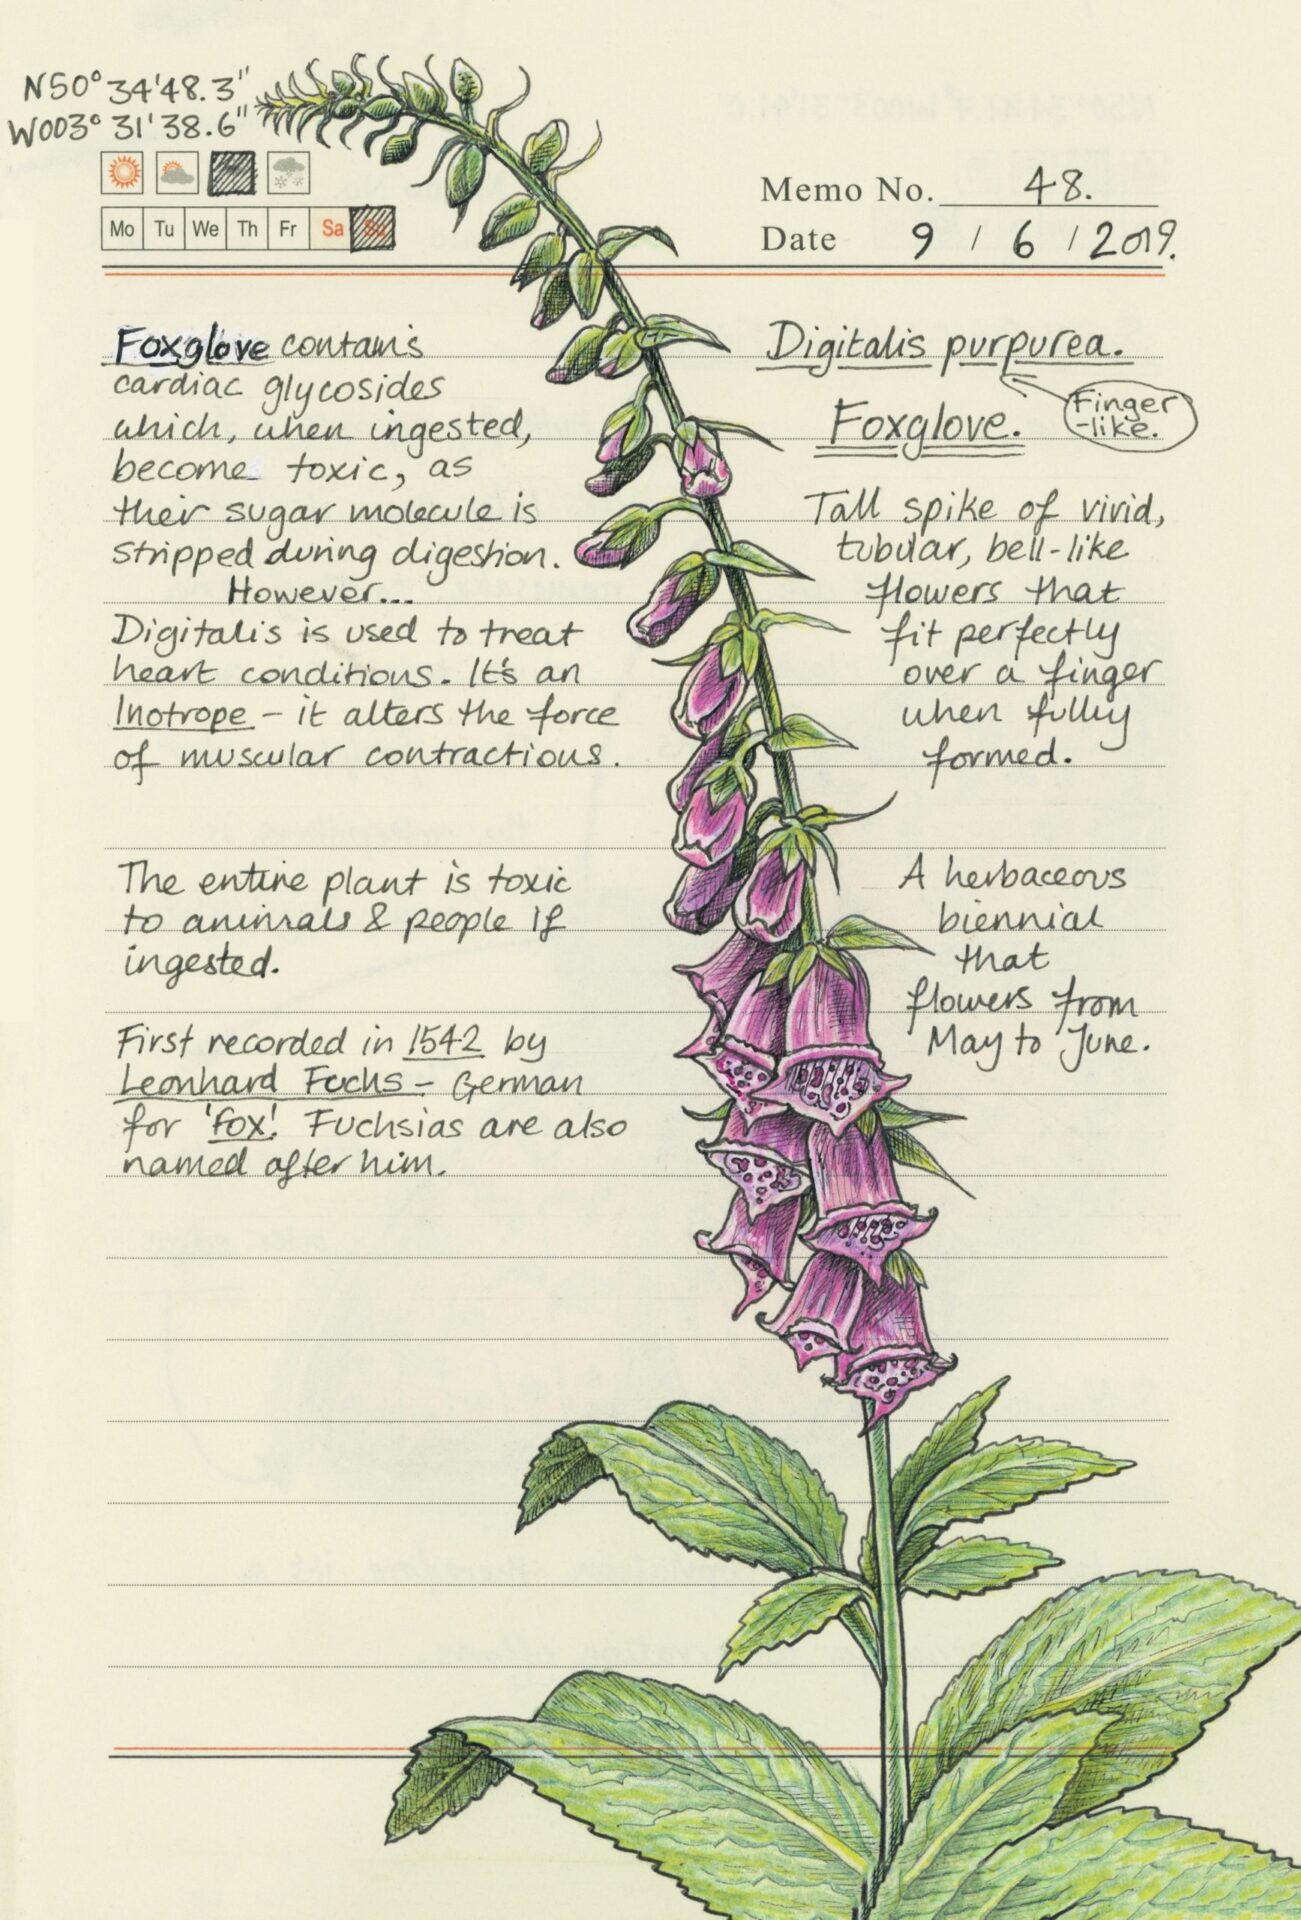 N50° 34'48.3"
W003° 31'38.6"
Mo Tu We Th Fr Sa Su
Memo No. 48.
Date 9 / 6 / 2019.
Foxglove contains
cardiac glycosides
which, when ingested,
become toxic, as
their sugar molecule is
stripped during digestion.
However...
Digitalis is used to treat
heart conditions. It's an
Inotrope – it alters the force
of muscular contractions.
The entire plant is toxic
to animals & people if
ingested.
First recorded in 1542 by
Leonhard Fuchs – German
for 'fox'. Fuchsias are also
named after him.
Digitalis purpurea.
Finger
-like.
Foxglove.
Tall spike of vivid,
tubular, bell-like
flowers that
fit perfectly
over a finger
when fully
formed.
A herbaceous
biennial
that
flowers from
May to June.